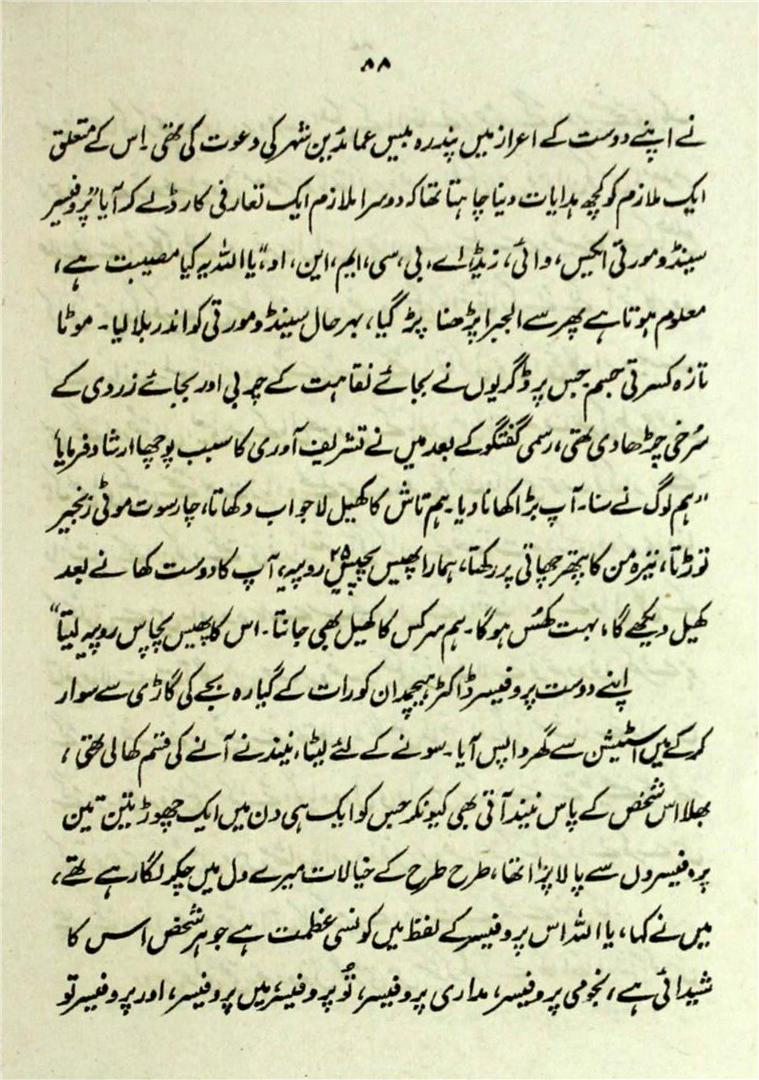 ۸۸
نے اپنے دوست کے اعزاز میں پندرہ بیس عمائدین شہر کی دعوت کی تھی۔ اس کے متعلق
ایک ملازم کو کچھ ہدایات دینا چاہتا تھا کہ دوسرا ملازم ایک تعارفی کارڈ لے کر آیا "پروفیسر
سینڈو مورتی ایکس، وائی، زیڈ، اے، بی، سی، ایم، این، او،" یا اللہ یہ کیا مصیبت ہے،
معلوم ہوتا ہے پھر سے الجبرا پڑھنا پڑ گیا، بہرحال سینڈو مورتی کو اندر بلا لیا۔ موٹا
تازہ کسرتی جسم جس پر ڈگریوں نے بجائے نقاہت کے چربی اور بجائے زردی کے
سُرخی چڑھا دی تھی، رسمی گفتگو کے بعد میں نے تشریف آوری کا سبب پوچھا ارشاد فرمایا
"ہم لوگ نے سنا۔ آپ بڑا کھانا دیا۔ ہم تاش کا کھیل لاجواب دکھاتا، چار سوت موٹی زنجیر
توڑتا، تیرہ من کا پتھر چھاتی پر رکھتا، ہمارا پھیس پچیس ۲۵ روپیہ، آپ کا دوست کھانے بعد
کھیل دیکھے گا، بہت کھُس ہوگا۔ ہم سرکس کا کھیل بھی جانتا۔ اس کا پھیس پچاس روپیہ لیتا"
اپنے دوست پروفیسر ڈاکٹر ہیچمدان کو رات کے گیارہ بجے کی گاڑی سے سوار
کر کے میں اسٹیشن سے گھر واپس آیا۔ سونے کے لئے لیٹا، نیند نے آنے کی قسم کھالی تھی،
بھلا اس شخص کے پاس نیند آتی بھی کیونکر جس کو ایک ہی دن میں ایک چھوڑ تین تین
پروفیسروں سے پالا پڑا تھا، طرح طرح کے خیالات میرے دل میں چکر لگا رہے تھے،
میں نے کہا، یا اللہ اس پروفیسر کے لفظ میں کونسی عظمت ہے جو ہر شخص اس کا
شیدائی ہے، نجومی پروفیسر، مداری پروفیسر، تُو پروفیسر، میں پروفیسر، اور پروفیسر تو